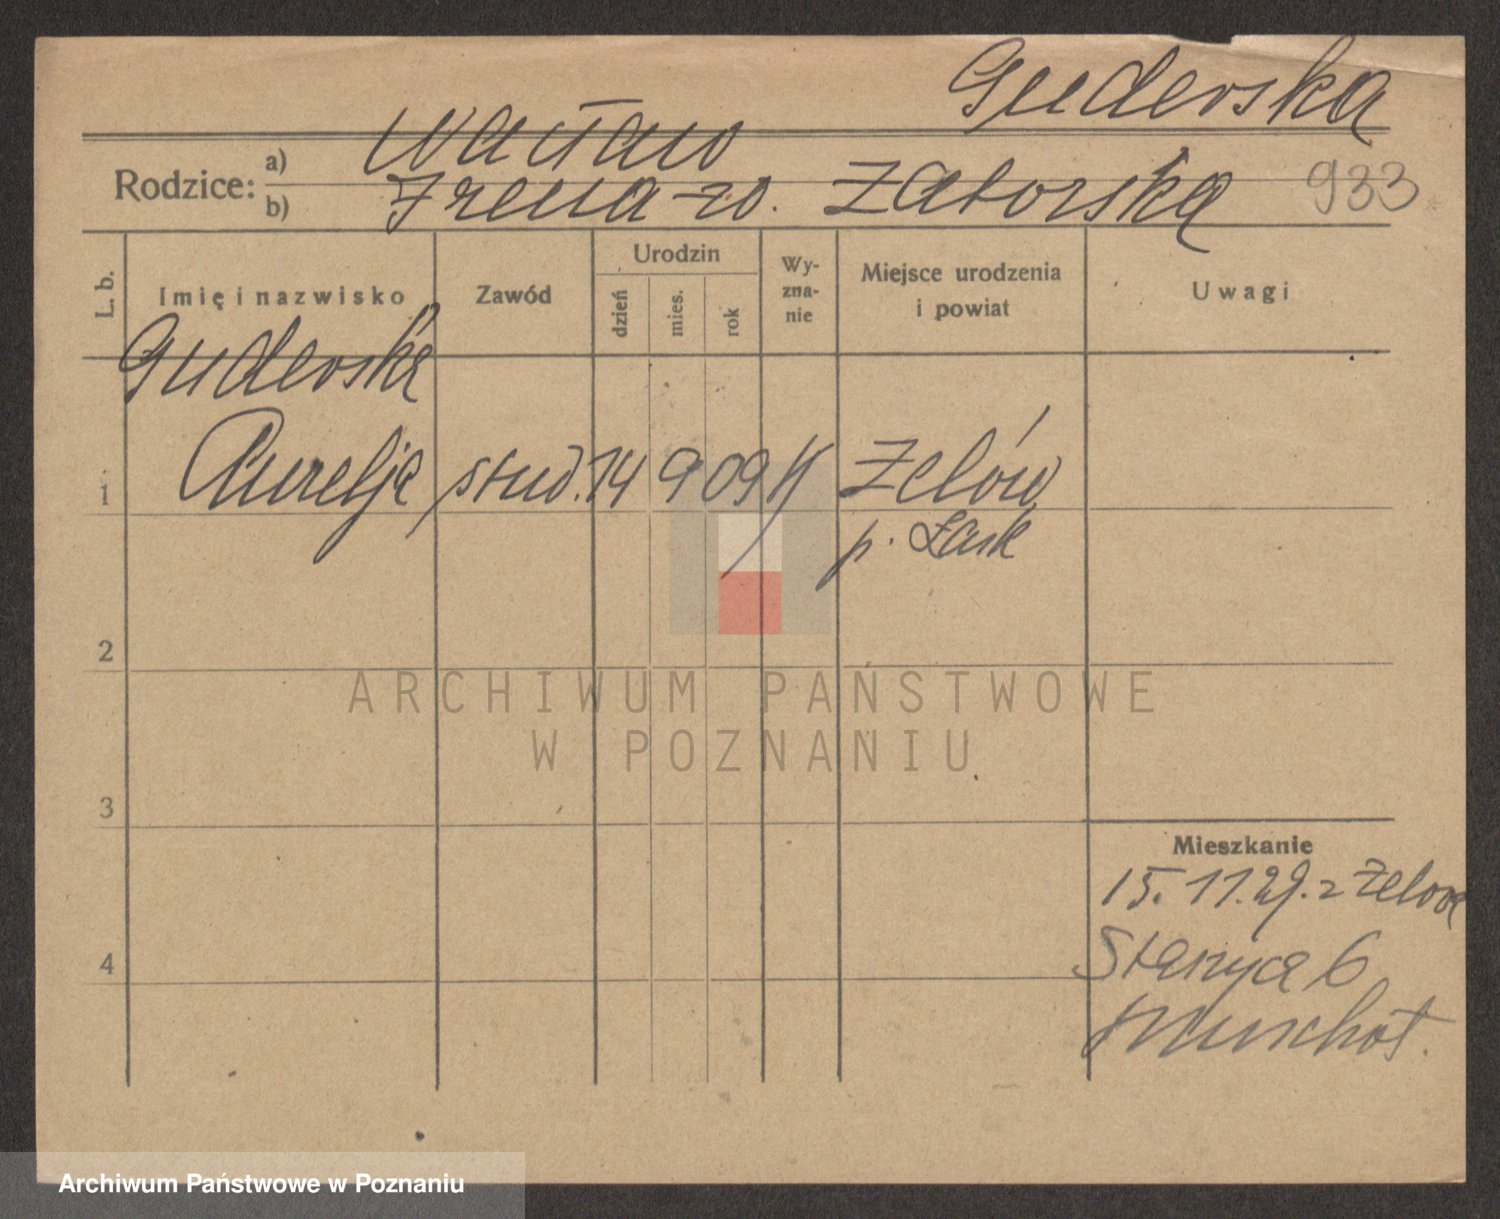 Guderska
Rodzice: a) Wacław
b) Irena zd. Zatorska 933
L. b. Imię i nazwisko Zawód Urodzin dzień mies. rok Wyznanie Miejsce urodzenia i powiat Uwagi
Guderska
1 Aurelja stud. 14 9 09 Zelów
p. Łask
2
ARCHIWUM PAŃSTWOWE
W POZNANIU
3
Mieszkanie
15. 11. 29. z Zelowa
4
6
Archiwum Państwowe w Poznaniu